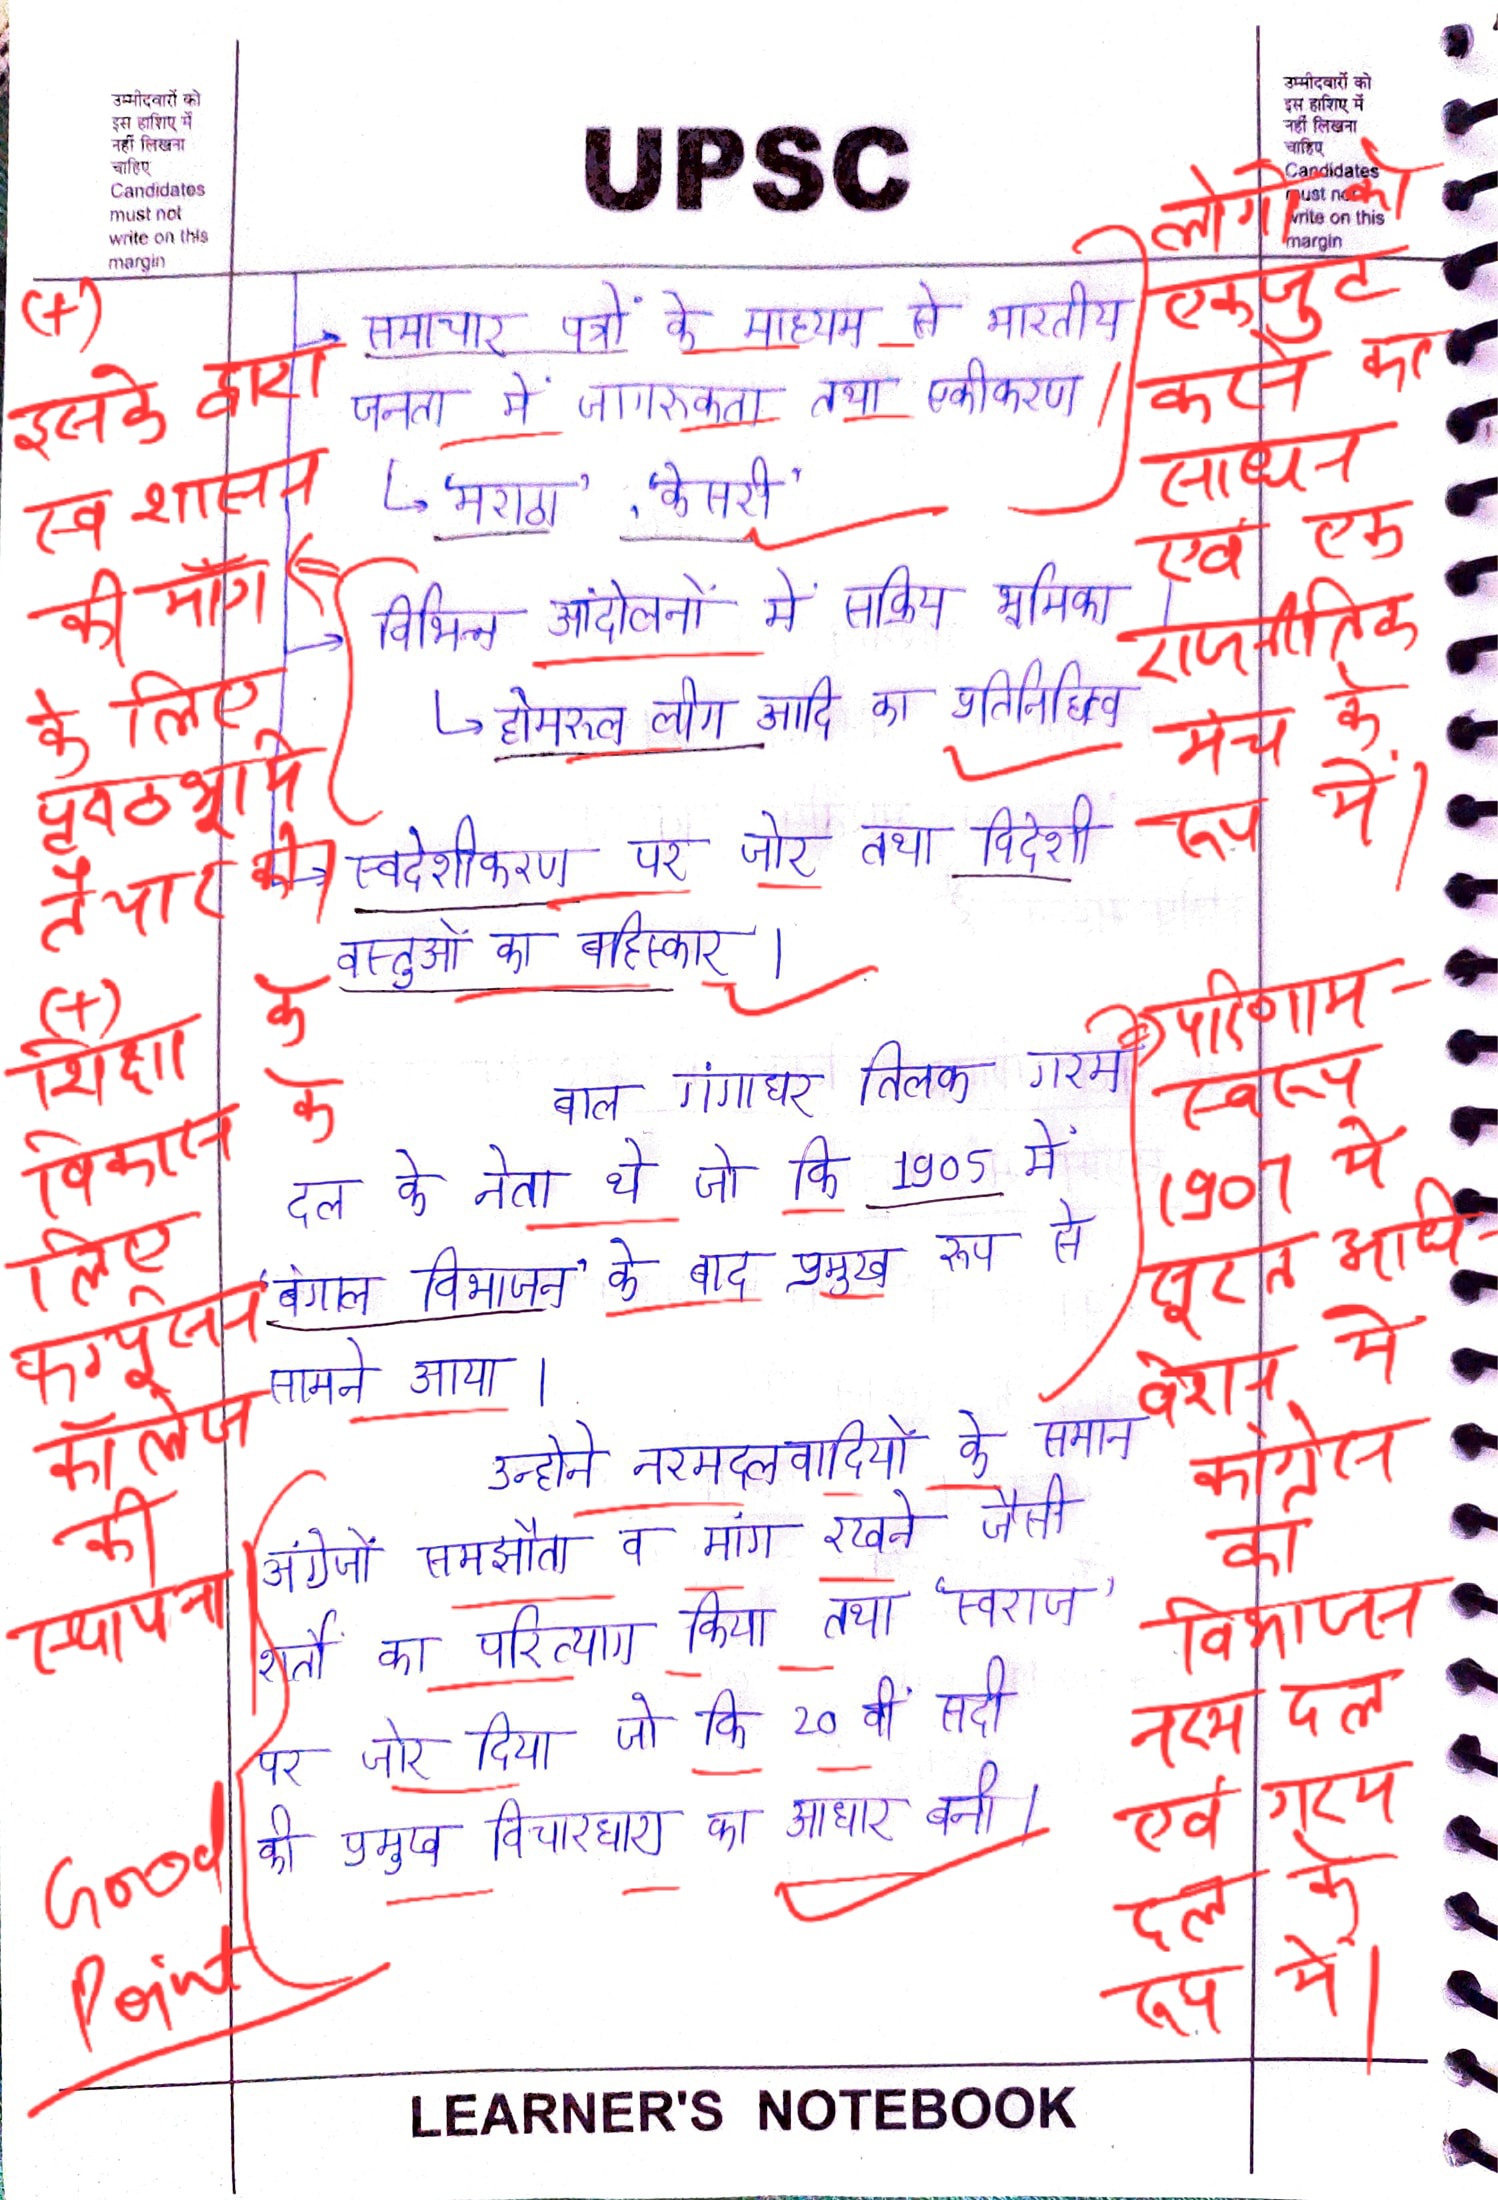 उम्मीदवारों को
इस हाशिए में
नहीं लिखना
चाहिए
Candidates
must not
write on this
margin
UPSC
उम्मीदवारों को
इस हाशिए में
नहीं लिखना
चाहिए
Candidates
must not
write on this
margin
समाचार पत्रों के माध्यम से भारतीय
जनता में जागरुकता तथा एकीकरण।
↳ 'मराठा', 'केसरी'
→ विभिन्न आंदोलनों में सक्रिय भूमिका।
↳ होमरुल लीग आदि का प्रतिनिधित्व
→ स्वदेशीकरण पर जोर तथा विदेशी
वस्तुओं का बहिस्कार।
बाल गंगाधर तिलक गरम
दल के नेता थे जो कि 1905 में
'बंगाल विभाजन' के बाद प्रमुख रूप से
सामने आया।
उन्होने नरमदलवादियों के समान
अंग्रेजों समझौता व मांग रखने जैसी
शर्तों का परित्याग किया तथा 'स्वराज'
पर जोर दिया जो कि 20 वीं सदी
की प्रमुख विचारधारा का आधार बनी।
(+)
इसके द्वारा
स्व शासन
की माँग
के लिए
पृष्ठभूमि
तैयार की।
(+)
शिक्षा के
विकास के
लिए
फर्ग्यूसन
कॉलेज
की
स्थापना
Good
Point
लोगों को
एकजुट
करने का
साधन
एवं एक
राजनीतिक
मंच के
रूप में।
परिणाम-
स्वरूप
1907 में
सूरत अधि-
वेशन में
कांग्रेस
का
विभाजन
नरम दल
एवं गरम
दल के
रूप में।
LEARNER'S NOTEBOOK